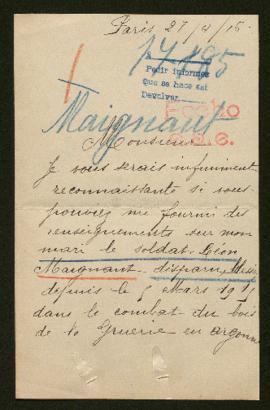 Paris 27/9/15-
17485
Pedir informes
que se hace así
Devolver
Maignant
Monsieur
Je vous serais infiniment
reconnaissante si vous
pouvez me fournir des
renseignements sur mon
mari le soldat Léon
Maignant disparu
depuis le 5 Mars 1915
dans le combat du bois
de la Gruerie en argonne